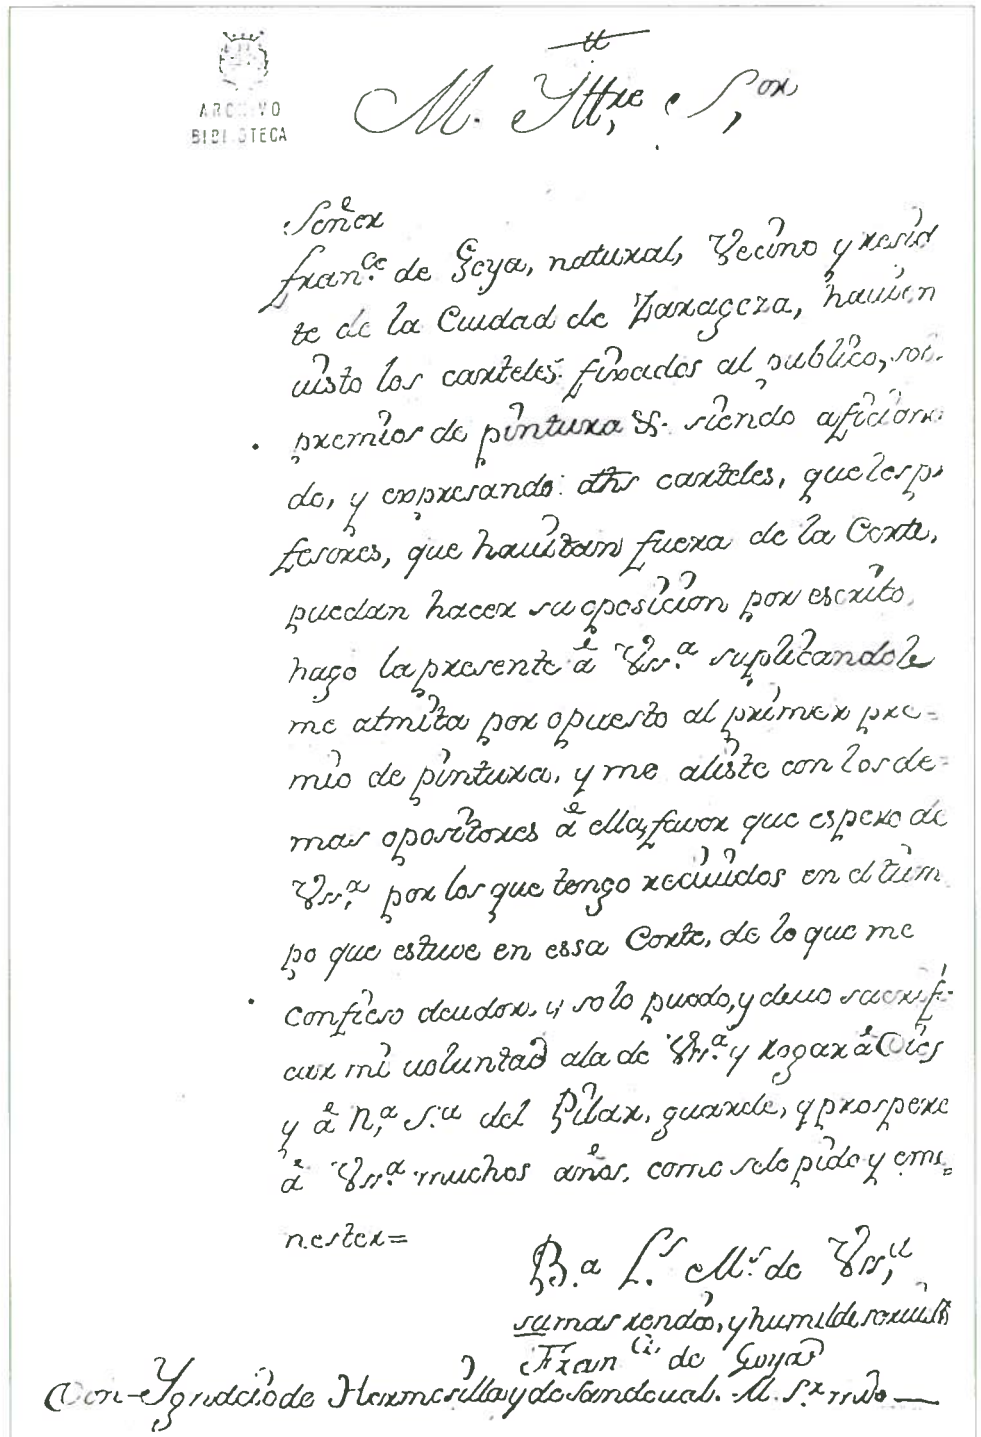 ARCHIVO
BIBLIOTECA
M. Ylltre Sor
Señor
Franco. de Goya, natural, Vecino y resid
te de la Ciudad de Zaragoza, havien
visto los carteles fixados al publico, sob.
premios de pintura &. siendo aficiona
do, y expresando dhs carteles, que los p
fesores, que havitan fuera de la Corte,
puedan hacer su oposicion por escrito,
hago la presente á Vss.a suplicandole
me atmita por opuesto al primer pre=
mio de pintura, y me aliste con los de=
mas opositores á ella, favor que espero de
Vss.a por los que tengo recividos en el tiem
po que estuve en essa Corte, de lo que me
confieso deudor, y solo puedo, y devo sacrifi-
car mi voluntad ala de Vss.a y rogar á Dios
y á N.a S.a del Pilar, guarde, y prospere
á Vss.a muchos años, como selo pido y eme
nester=
B.a L.s M.s de Vss.a
su mas rendo, y humilde servidr
Franco. de Goya
Don Ygnacio de Hermosilla y de Sandoval. M. Sr mio